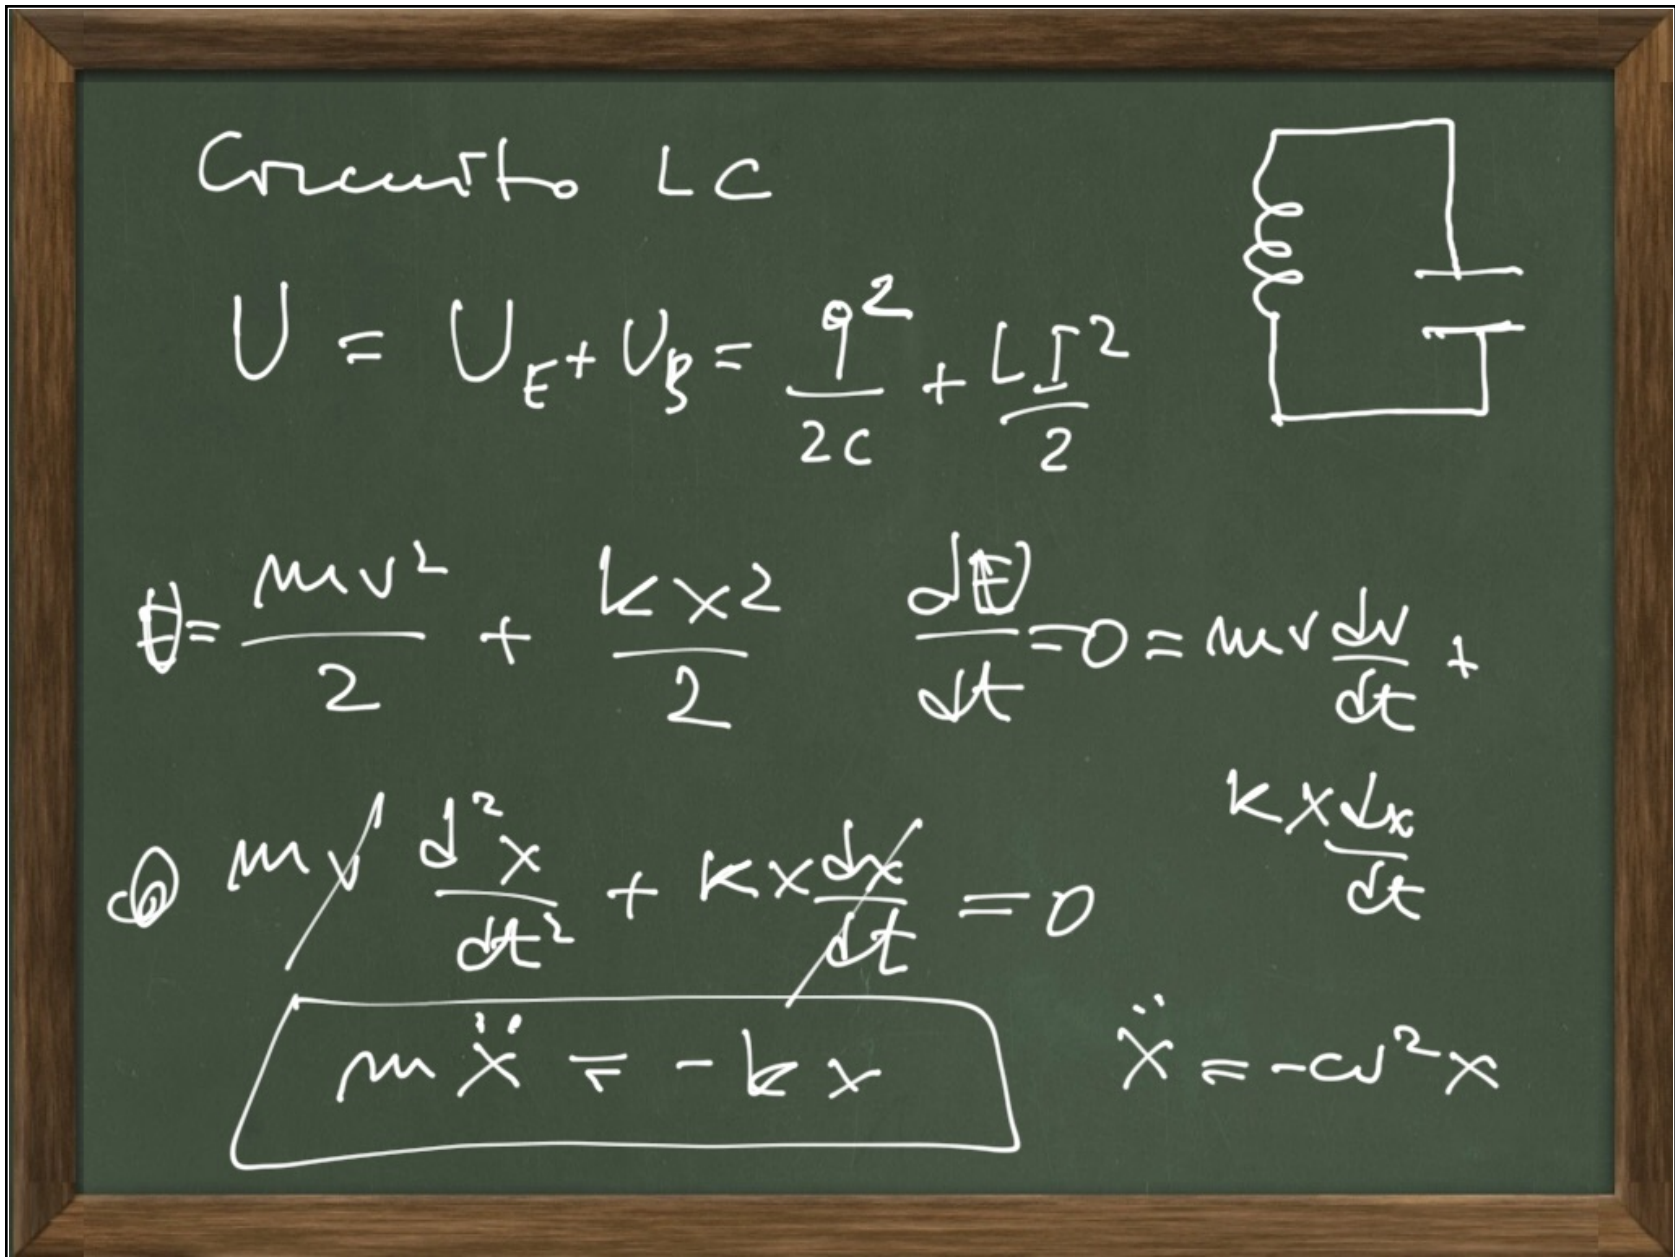 Circuito LC
U = U_E + U_B = q²/2C + LI²/2
E = mv²/2 + kx²/2   dE/dt = 0 = mv dv/dt +
kx dx/dt
mv d²x/dt² + kx dx/dt = 0
mẍ = -kx   ẍ = -ω²x